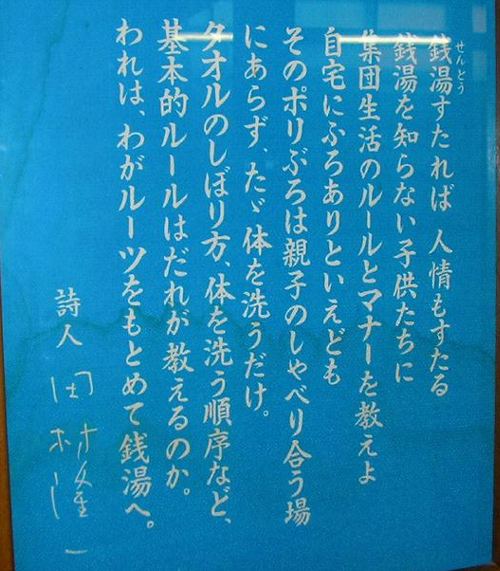 銭湯すたれば 人情もすたる
せんとう
銭湯を知らない子供たちに
集団生活のルールとマナーを教えよ
自宅にふろありといえども
そのポリぶろは親子のしゃべり合う場
にあらず、たゞ体を洗うだけ。
タオルのしぼり方、体を洗う順序など、
基本的ルールはだれが教えるのか。
われは、わがルーツをもとめて銭湯へ。
詩人 田村隆一